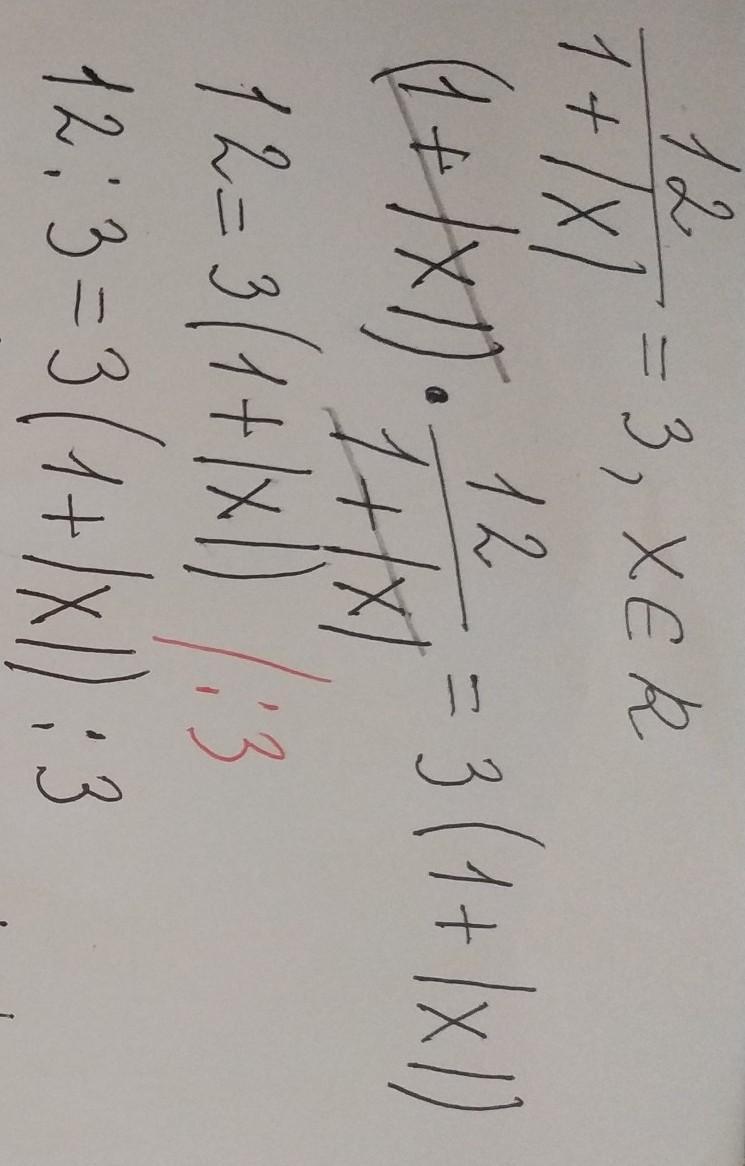 12/(1+|x|) = 3, x ∈ R
(1+|x|) · 12/(1+|x|) = 3(1+|x|)
12 = 3(1+|x|) /:3
12:3 = 3(1+|x|):3